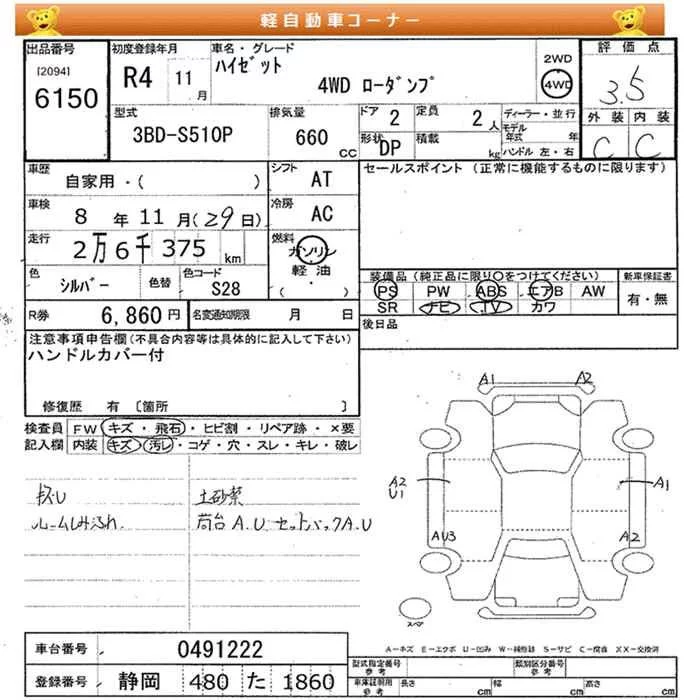 軽自動車コーナー
出品番号
[2094]
6150
初度登録年月
R4 11月
車名・グレード
ハイゼット
4WD ローダンプ
2WD
4WD
評価点
3.5
外装 内装
C C
型式
3BD-S510P
排気量
660 CC
ドア 2
定員 2人
形状 DP
積載 kg
ディーラー・並行
モデル年式 年
ハンドル 左・右
車歴
自家用・( )
シフト AT
車検
8年11月(29日)
冷房 AC
走行
2万6千375 km
燃料
ガソリン
軽油
( )
色
シルバー
色替
色コード
S28
R券 6,860円
名変通知期限 月 日
セールスポイント (正常に機能するものに限ります)
装備品(純正品に限り○をつけてください)
PS PW ABS エアB AW
SR ナビ TV カワ
新車保証書
有・無
後日品
注意事項申告欄(不具合内容等は具体的に記入して下さい)
ハンドルカバー付
修復歴 有 〔箇所 〕
検査員記入欄
FW キズ・飛石・ヒビ割・リペア跡・×要
内装 キズ・汚レ・コゲ・穴・スレ・キレ・破レ
荷台A.U セットバックA.U
A1 A2
A2
U1
A1
AU3 A2
スペア
A-キズ E-エクボ U-凹み W-補修跡 S-サビ C-腐食 XX-交換済
車台番号 0491222
登録番号 静岡 480 た 1860
型式指定番号 参考
類別区分番号 参考
車庫証明用 参考
長さ cm 幅 cm 高さ cm